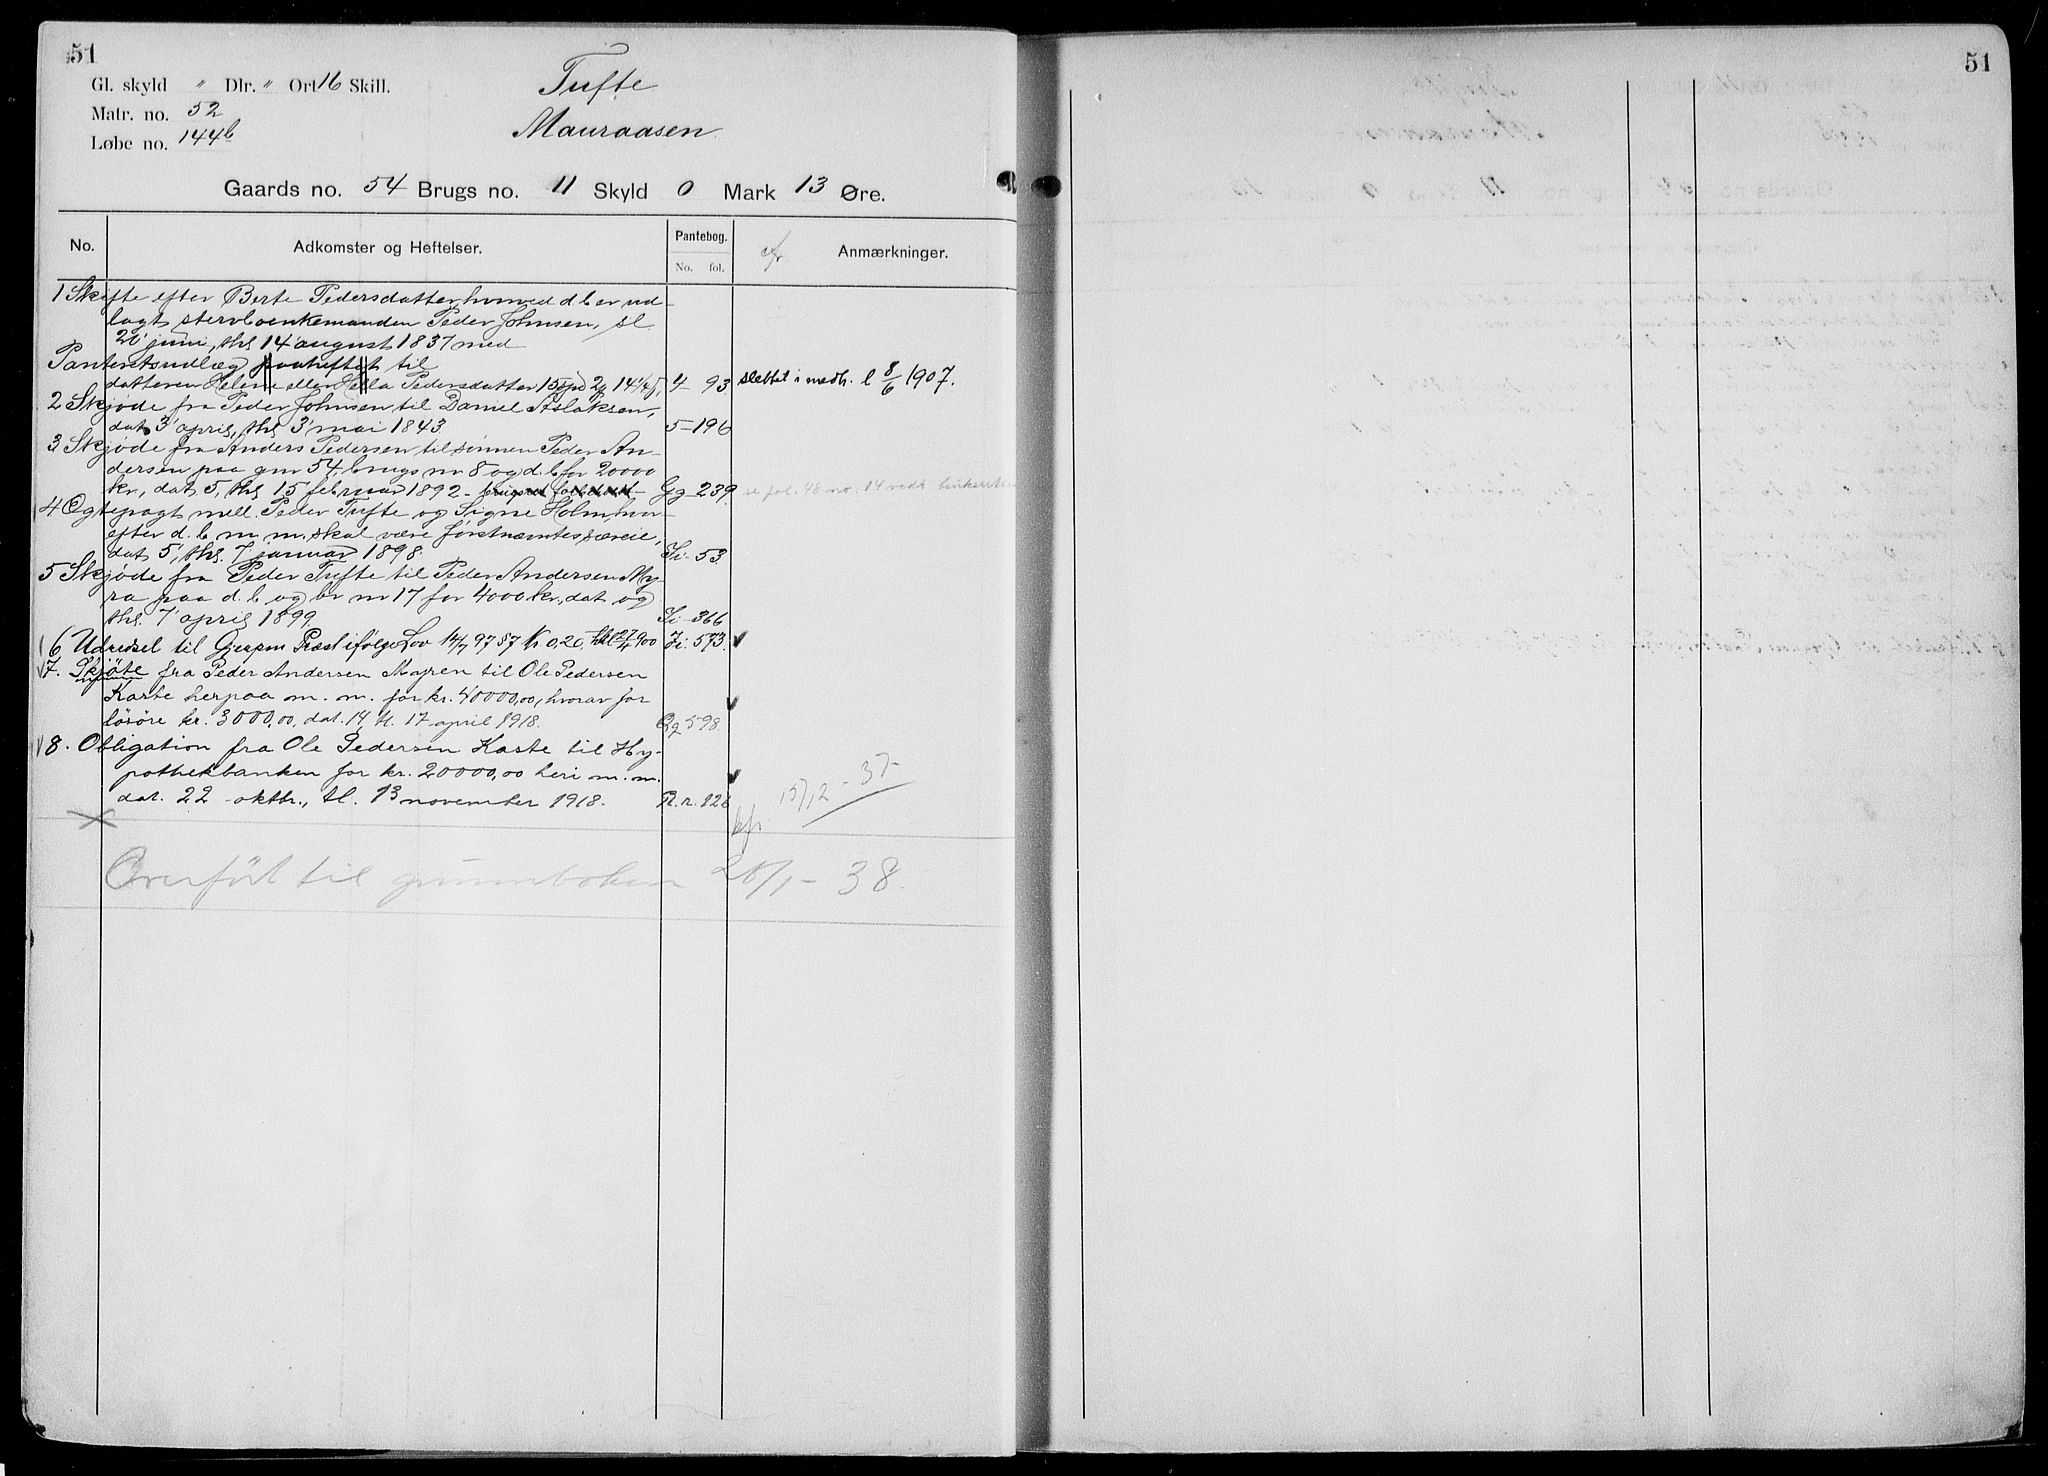 51
Gl. skyld " Dlr. " Ort 16 Skill.
Matr. no. 52
Løbe no. 144b
Tufte
Mauraasen
Gaards no. 54 Brugs no. 11 Skyld 0 Mark 13 Øre.
No. Adkomster og Heftelser. Pantebog. No. fol. Anmærkninger.
1 Skifte efter Berte Pedersdatter hvorved d. b. er ud-
lagt stervboenkemanden Peder Johnsen, sl.
juni, thl. 14 august 1837 med
Panteretsudlæg paaheftet til
datteren Helene eller Hella Pedersdatter 15 spd 4 93 slettet i medh. l 8/6 1907.
2 Skjøde fra Peder Johnsen til Daniel Aslaksen,
dat. 3 april, thl. 3 mai 1843 5-196
3 Skjøde fra Anders Pedersen til sønnen Peder An-
dersen paa gnr 54, brugs nr 8 og d. b. for 20000
kr., dat. 5, thl. 15 februar 1892 - Gg-239 se fol. 48 no. 14 vedk.
4 Ægtepagt mell. Peder Tufte og Signe Holm, hvor-
efter d. b. m. m. skal være førstnævntes særeie,
dat. 5, thl. 7 januar 1898. Ii-53
5 Skjøde fra Peder Tufte til Peder Andersen My-
ra paa d. b. og br nr 17 for 4000 kr., dat. og
thl. 7 april 1899. Ii-366
6 Udredsel til Gjerpen Præst ifølge Lov 14/7 97 § 7 Kr 0,20 thl 27/4 900 Ii. 573.
7. Skjöte fra Peder Andersen Myren til Ole Pedersen
Kaste herpaa m. m. for kr. 40000,00, hvorav for
lösöre kr. 3000,00, dat. 14, tl. 17 april 1918. Qq 598.
8. Obligation fra Ole Pedersen Kaste til Hy-
pothekbanken for kr. 20000,00 heri m. m.
dat. 22 oktbr., tl. 13 november 1918. R.r. 126
kfr. 15/12-37-
Overfört til grunnboken 28/1-38.
51